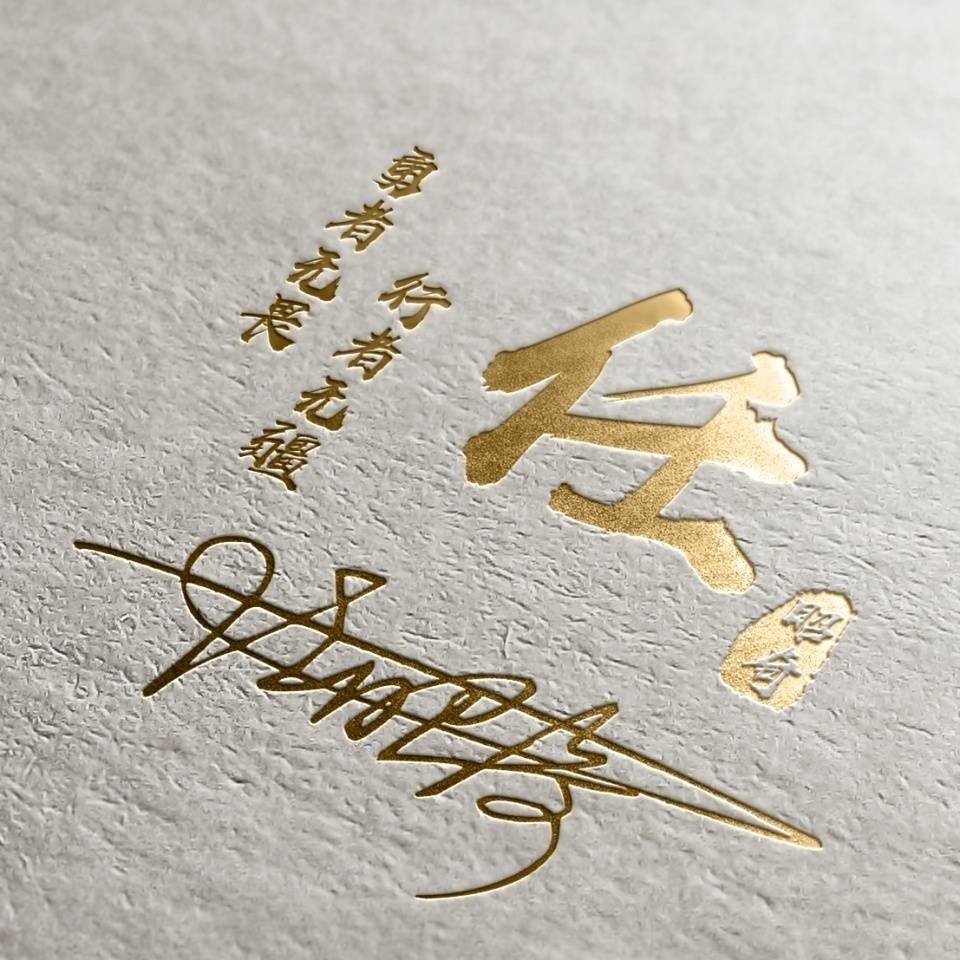 勇者无畏
行者无疆
任
昭奇